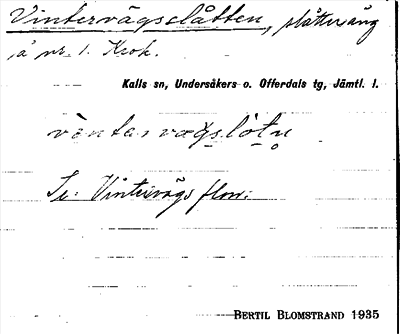 Vintervägslåtten, slåtteräng
å nr 1. Krok.
Kalls sn, Undersåkers o. Offerdals tg, Jämtl. l.
vènta₁ vægs₁lòt₁n
Se: Vintervägsflon:
BERTIL BLOMSTRAND 1935